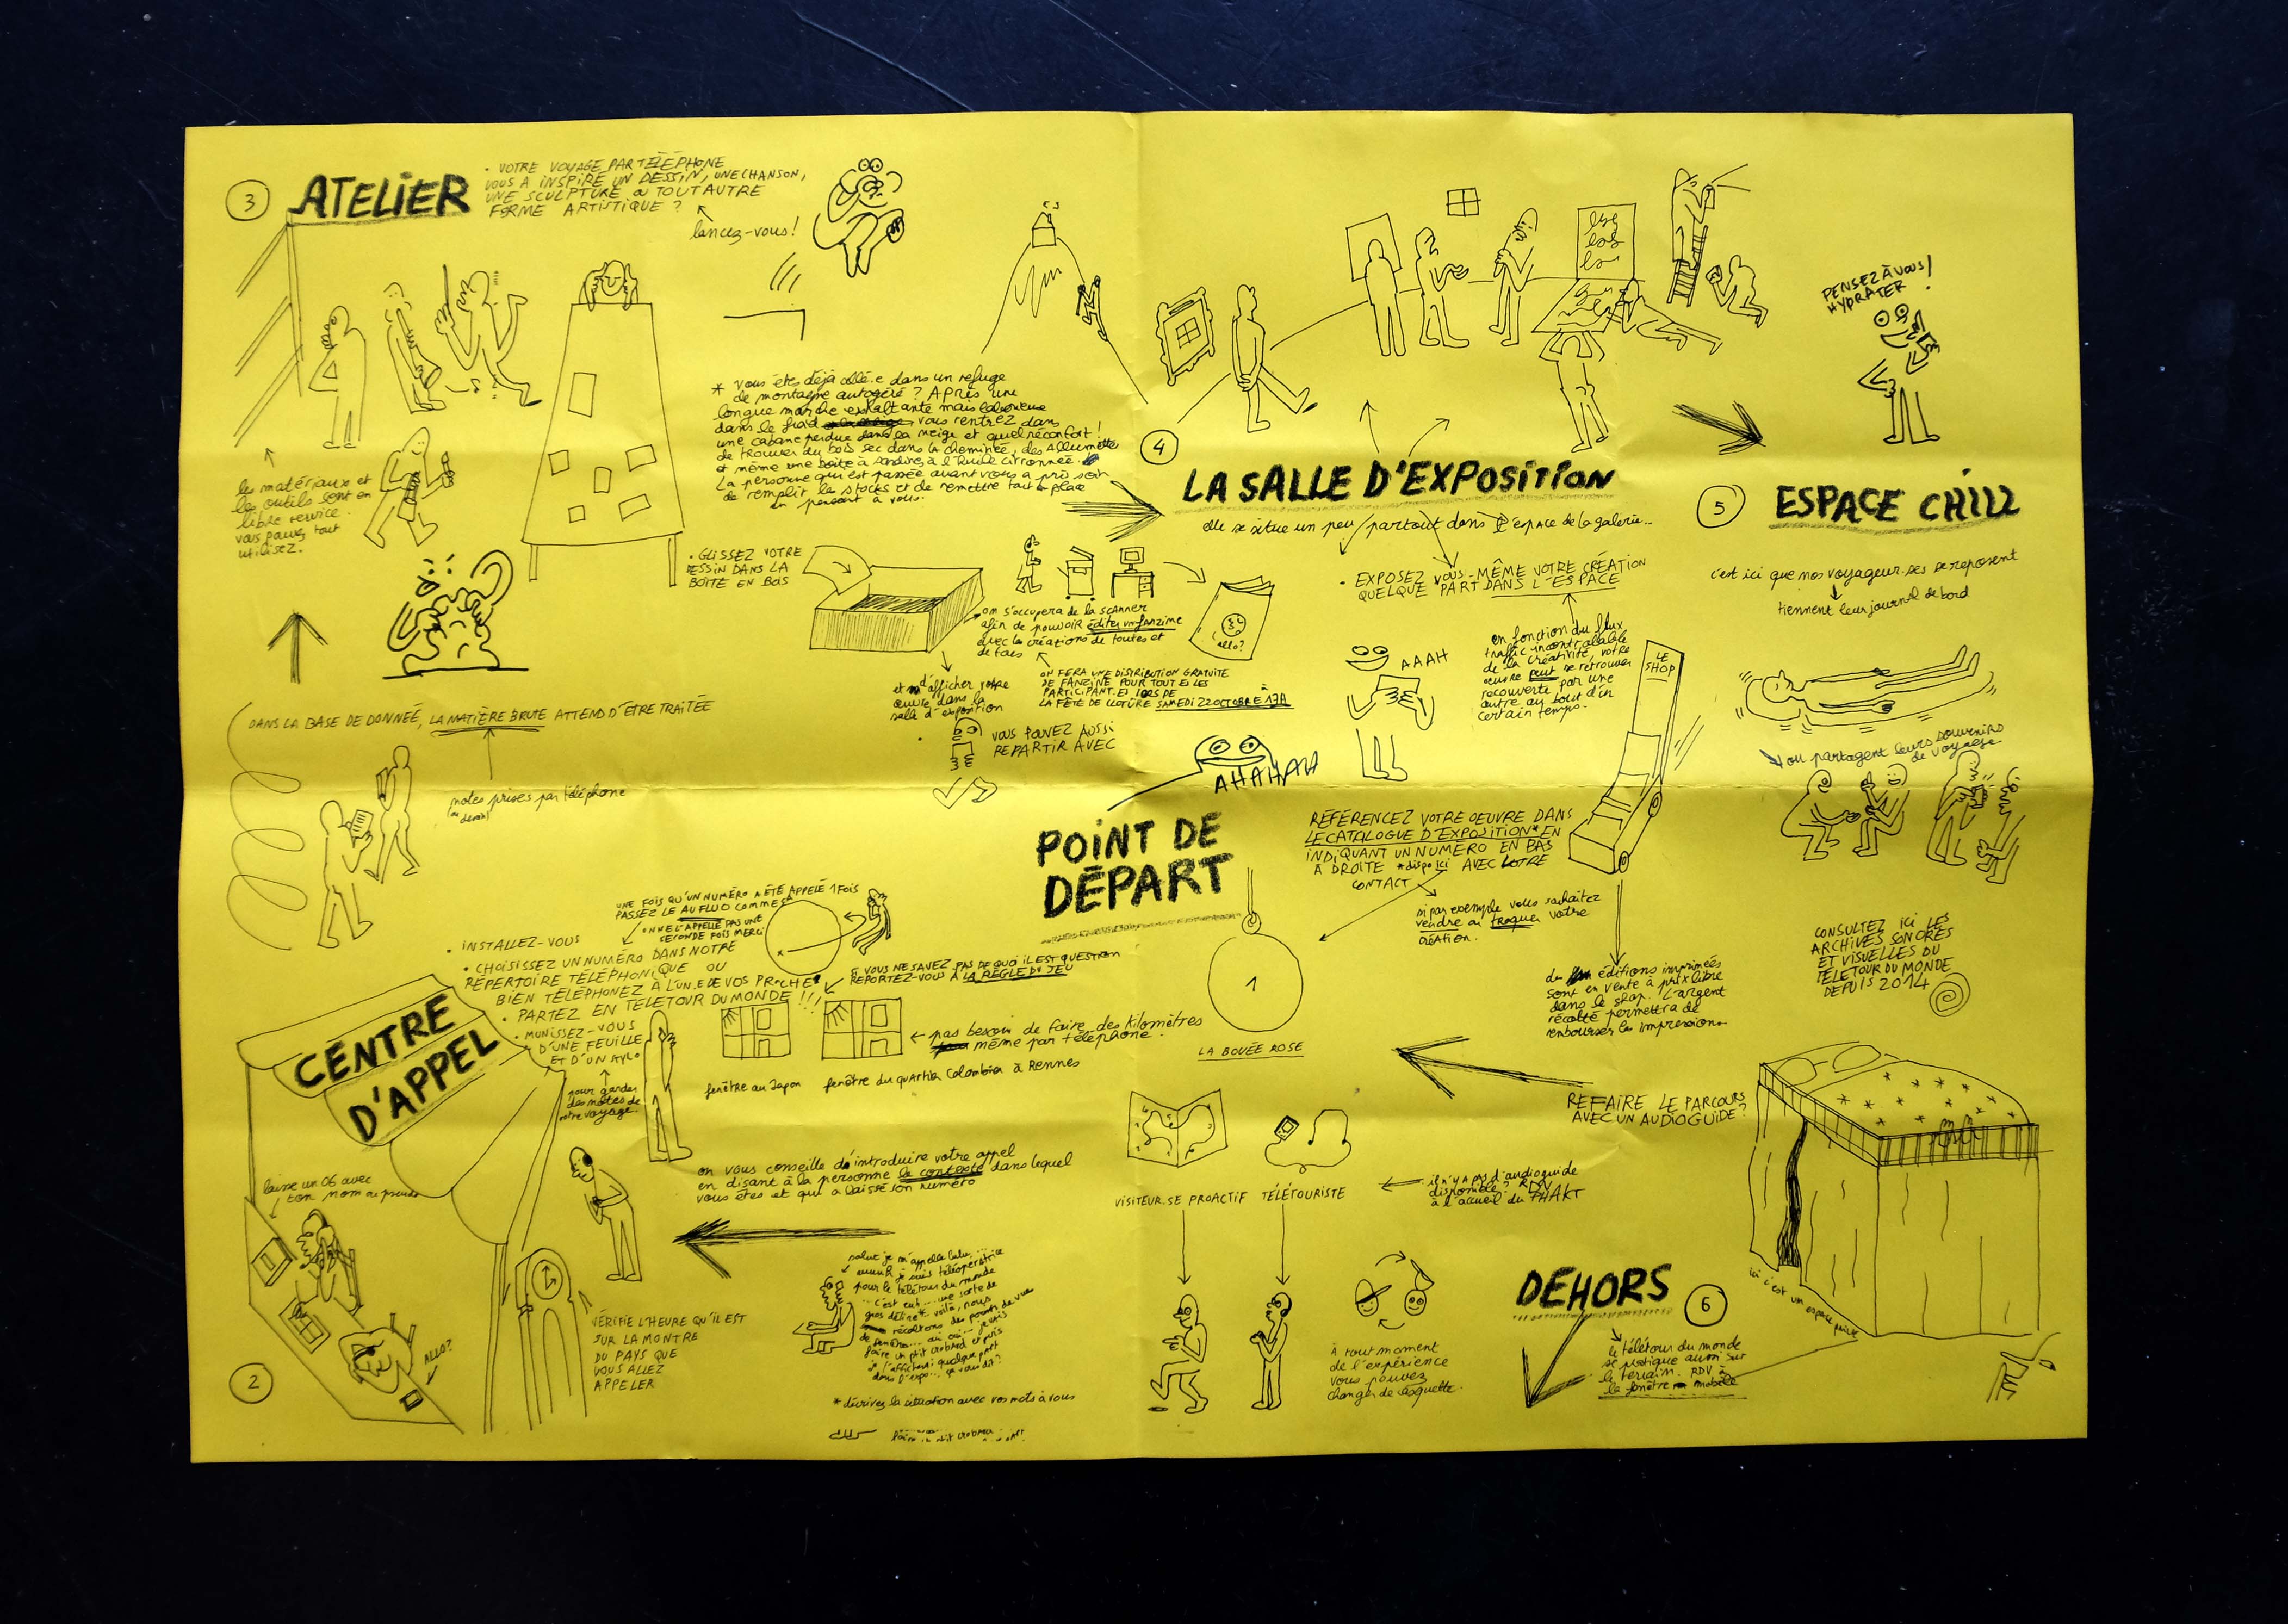 3
ATELIER
• VOTRE VOYAGE PAR TÉLÉPHONE
VOUS A INSPIRÉ UN DESSIN, UNE CHANSON,
UNE SCULPTURE OU TOUT AUTRE
FORME ARTISTIQUE ?
lancez-vous !
les matériaux et
les outils sont en
libre service.
vous pouvez tout
utilisez.
* Vous êtes déjà allé.e dans un refuge
de montagne autogéré ? Après une
longue marche exaltante mais laborieuse
dans le froid vous rentrez dans
une cabane perdue dans la neige et quel réconfort !
de trouver du bois sec dans la cheminée, des allumettes
et même une boîte à sardines à l'huile citronnée.
La personne qui est passée avant vous a pris soin
de remplir les stocks et de remettre tout en place
en pensant à vous.
• GLISSEZ VOTRE
DESSIN DANS LA
BOITE EN BOIS
on s'occupera de la scanner
afin de pouvoir éditer un fanzine
avec les créations de toutes et
de tous
allo?
ON FERA UNE DISTRIBUTION GRATUITE
DE FANZINE POUR TOUT ES LES
PARTICIPANT.ES LORS DE
LA FÊTE DE CLOTURE SAMEDI 22 OCTOBRE À 17H
et d'afficher votre
œuvre dans la
salle d'exposition
VOUS POUVEZ AUSSI
REPARTIR AVEC
DANS LA BASE DE DONNÉE, LA MATIÈRE BRUTE ATTEND D'ÊTRE TRAITÉE
notes prises par téléphone
(ou dessin)
4
LA SALLE D'EXPOSITION
elle se situe un peu partout dans l'espace de la galerie...
• EXPOSEZ VOUS-MÊME VOTRE CRÉATION
QUELQUE PART DANS L'ESPACE
en fonction du flux
traffic incontrolable
de la créativité, votre
œuvre peut se retrouver
recouverte par une
autre au bout d'un
certain temps.
AAAH
LE
SHOP
AHAHAH
RÉFÉRENCEZ VOTRE OEUVRE DANS
LE CATALOGUE D'EXPOSITION* EN
INDIQUANT UN NUMÉRO EN BAS
À DROITE *dispo ici AVEC VOTRE
CONTACT
si par exemple vous souhaitez
vendre ou troquer votre
création.
des éditions imprimées
sont en vente à prix libre
dans le shop. L'argent
récolté permettra de
rembourser les impressions
PENSEZ À VOUS
HYDRATER !
5
ESPACE CHILL
c'est ici que nos voyageur.ses se reposent
tiennent leur journal de bord
ou partagent leurs souvenirs
de voyage
CONSULTEZ ICI LES
ARCHIVES SONORES
ET VISUELLES DU
TÉLÉTOUR DU MONDE
DEPUIS 2014
POINT DE
DÉPART
1
LA BOUÉE ROSE
REFAIRE LE PARCOURS
AVEC UN AUDIOGUIDE ?
il n'y a pas d'audioguide
disponible ? RDV
à l'accueil du PHAKT
VISITEUR.SE PROACTIF
TÉLÉTOURISTE
À tout moment
de l'expérience
vous pouvez
changer de casquette.
UNE FOIS QU'UN NUMÉRO A ÉTÉ APPELÉ 1 FOIS
PASSEZ LE AU FLUO COMME ÇA
ON NE L'APPELLE PAS UNE
SECONDE FOIS MERCI
• INSTALLEZ-VOUS
• CHOISISSEZ UN NUMÉRO DANS NOTRE
RÉPERTOIRE TÉLÉPHONIQUE OU
BIEN TÉLÉPHONEZ À L'UN.E DE VOS PROCHES
• PARTEZ EN TÉLÉTOUR DU MONDE !!!
• MUNISSEZ-VOUS
D'UNE FEUILLE
ET D'UN STYLO
pour garder
des notes de
votre voyage.
SI VOUS NE SAVEZ PAS DE QUOI IL EST QUESTION
REPORTEZ-VOUS À LA RÈGLE DU JEU
pas besoin de faire des kilomètres
même par téléphone.
fenêtre au Japon
fenêtre du quartier Colombier à Rennes
CENTRE
D'APPEL
laisse un 06 avec
ton nom ou pseudo
on vous conseille d'introduire votre appel
en disant à la personne le contexte dans lequel
vous êtes et qui a laissé son numéro
ALLO?
2
VÉRIFIE L'HEURE QU'IL EST
SUR LA MONTRE
DU PAYS QUE
VOUS ALLEZ
APPELER
salut je m'appelle lulu...
euuuh je suis téléopératrice
pour le télétour du monde
... c'est euh... une sorte de
gros délire*, voilà, nous
récoltons des points de vue
de fenêtre...
faire un ptit crobard et puis
je l'afficherai quelque part
dans l'expo...
* décrivez la situation avec vos mots à vous
faire un ptit crobard
DEHORS
6
le télétour du monde
se pratique aussi sur
le terrain. RDV à
la fenêtre mobile
ici c'est un espace privé